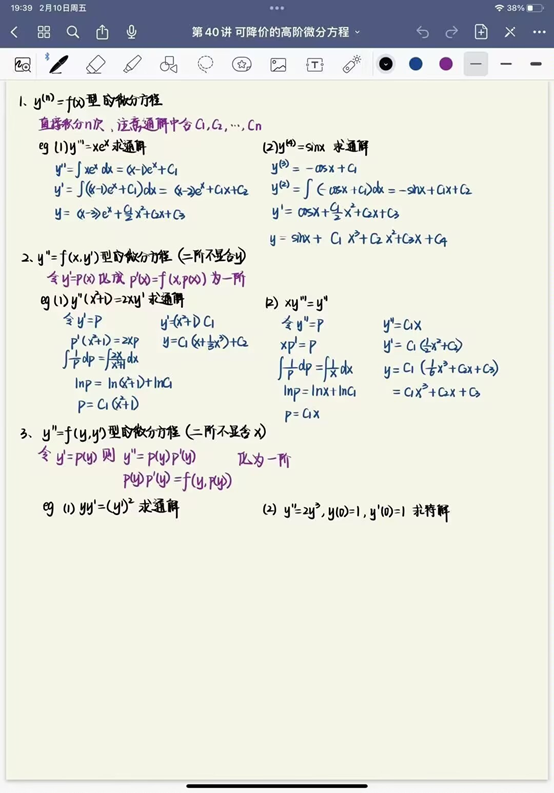 19:39 2月10日周五
38%
第40讲 可降价的高阶微分方程
1、y⁽ⁿ⁾=f(x)型的微分方程
直接积分n次,注意通解中含C₁,C₂,…,Cn
eg (1) y'''=xeˣ 求通解
y''=∫xeˣdx=(x-1)eˣ+C₁
y'=∫((x-1)eˣ+C₁)dx=(x-2)eˣ+C₁x+C₂
y=(x-3)eˣ+C₁/2 x²+C₂x+C₃
(2) y⁽⁴⁾=sinx 求通解
y⁽³⁾=-cosx+C₁
y⁽²⁾=∫(-cosx+C₁)dx=-sinx+C₁x+C₂
y'=cosx+C₁/2 x²+C₂x+C₃
y=sinx+C₁x³+C₂x²+C₃x+C₄
2、y''=f(x,y')型的微分方程(二阶不显含y)
令y'=p(x)化成p'(x)=f(x,p(x))为一阶
eg (1) y''(x²+1)=2xy' 求通解
令y'=P
p'(x²+1)=2xp
∫1/p dp=∫2x/(x²+1) dx
lnp=ln(x²+1)+lnC₁
p=C₁(x²+1)
y'=(x²+1)C₁
y=C₁(x+1/3x³)+C₂
(2) xy'''=y''
令y''=P
xp'=P
∫1/p dp=∫1/x dx
lnp=lnx+lnC₁
p=C₁x
y''=C₁x
y'=C₁(1/2x²+C₂)
y=C₁(1/6x³+C₂x+C₃)
=C₁x³+C₂x+C₃
3、y''=f(y,y')型的微分方程(二阶不显含x)
令y'=p(y)则 y''=p(y)p'(y) 化为一阶
p(y)p'(y)=f(y,p(y))
eg (1) yy'=(y')² 求通解
(2) y''=2y³,y(0)=1,y'(0)=1 求特解